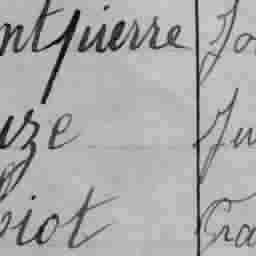 ntpierre Jo
uze Ju
biot Gra